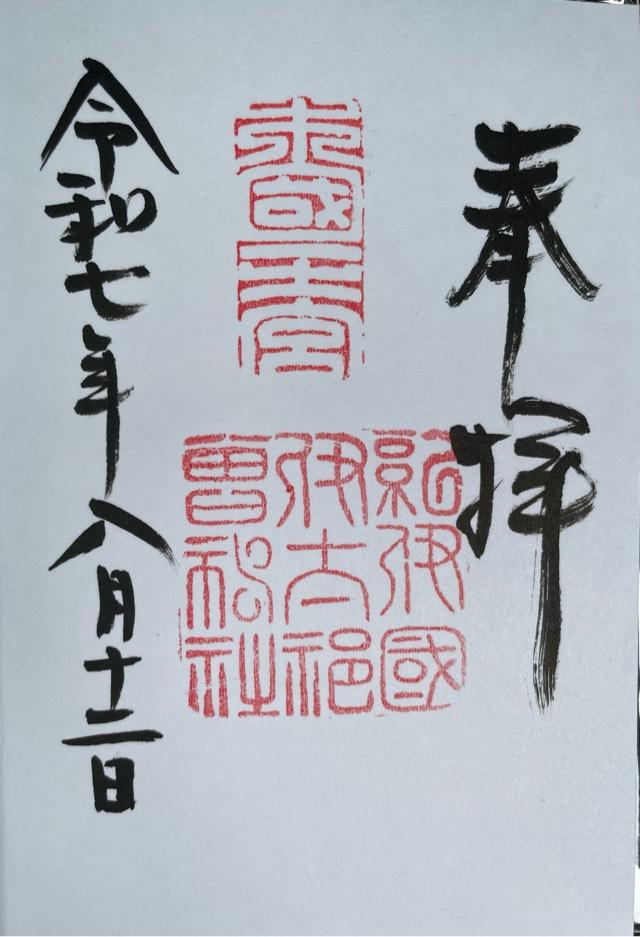 奉拝
紀伊國
伊太祁
曽神社
令和七年八月十二日